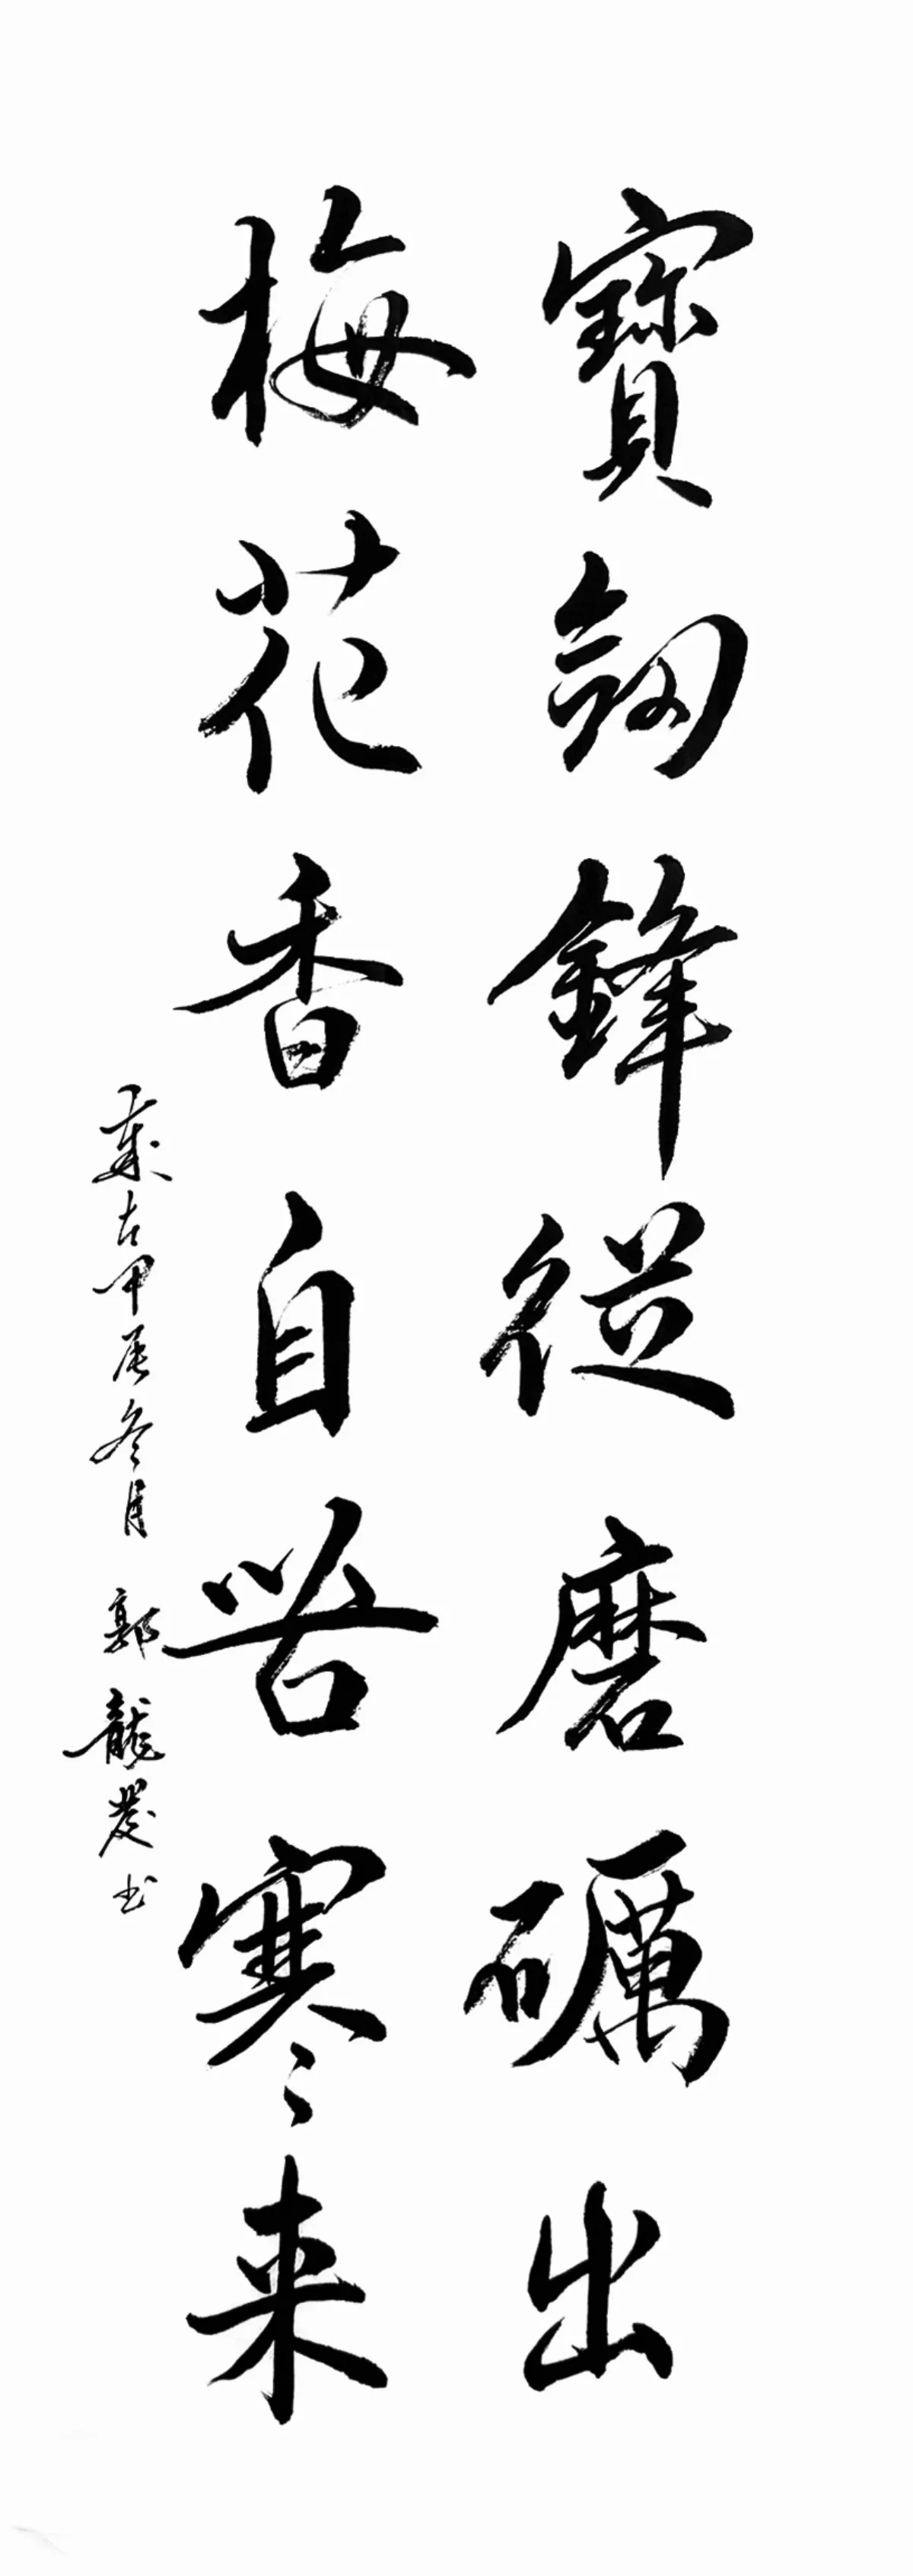 寶劍鋒從磨礪出
梅花香自苦寒来
古甲辰冬月 郭龍發书